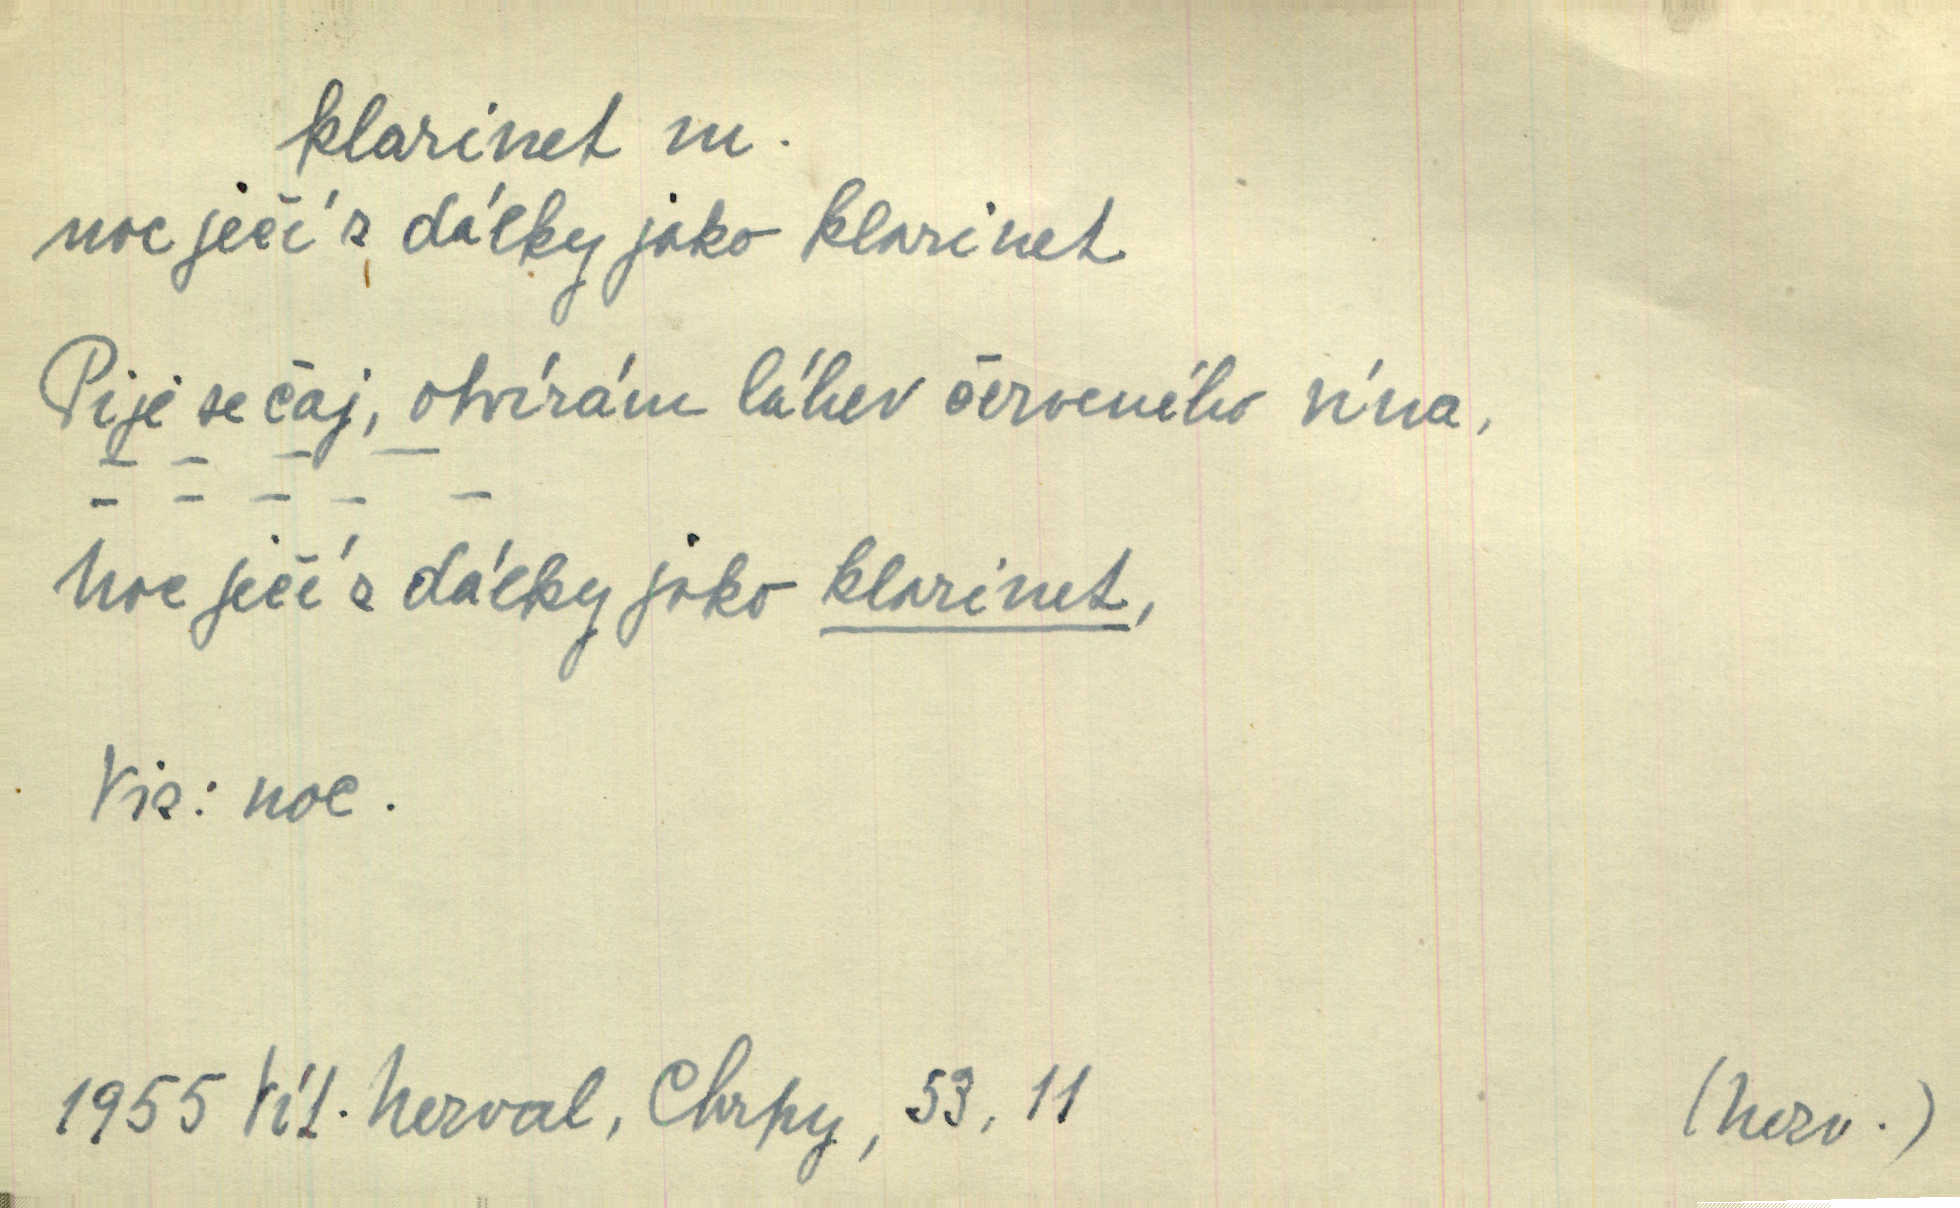 klarinet m.
noc ječí z dálky jako klarinet
Pije se čaj, otvírám láhev červeného vína,
– – – –
– – – – –
Noc ječí z dálky jako klarinet,
Viz: noc.
1955 Vít. Nerval, Chrpy, 53, 11
(Nerv.)